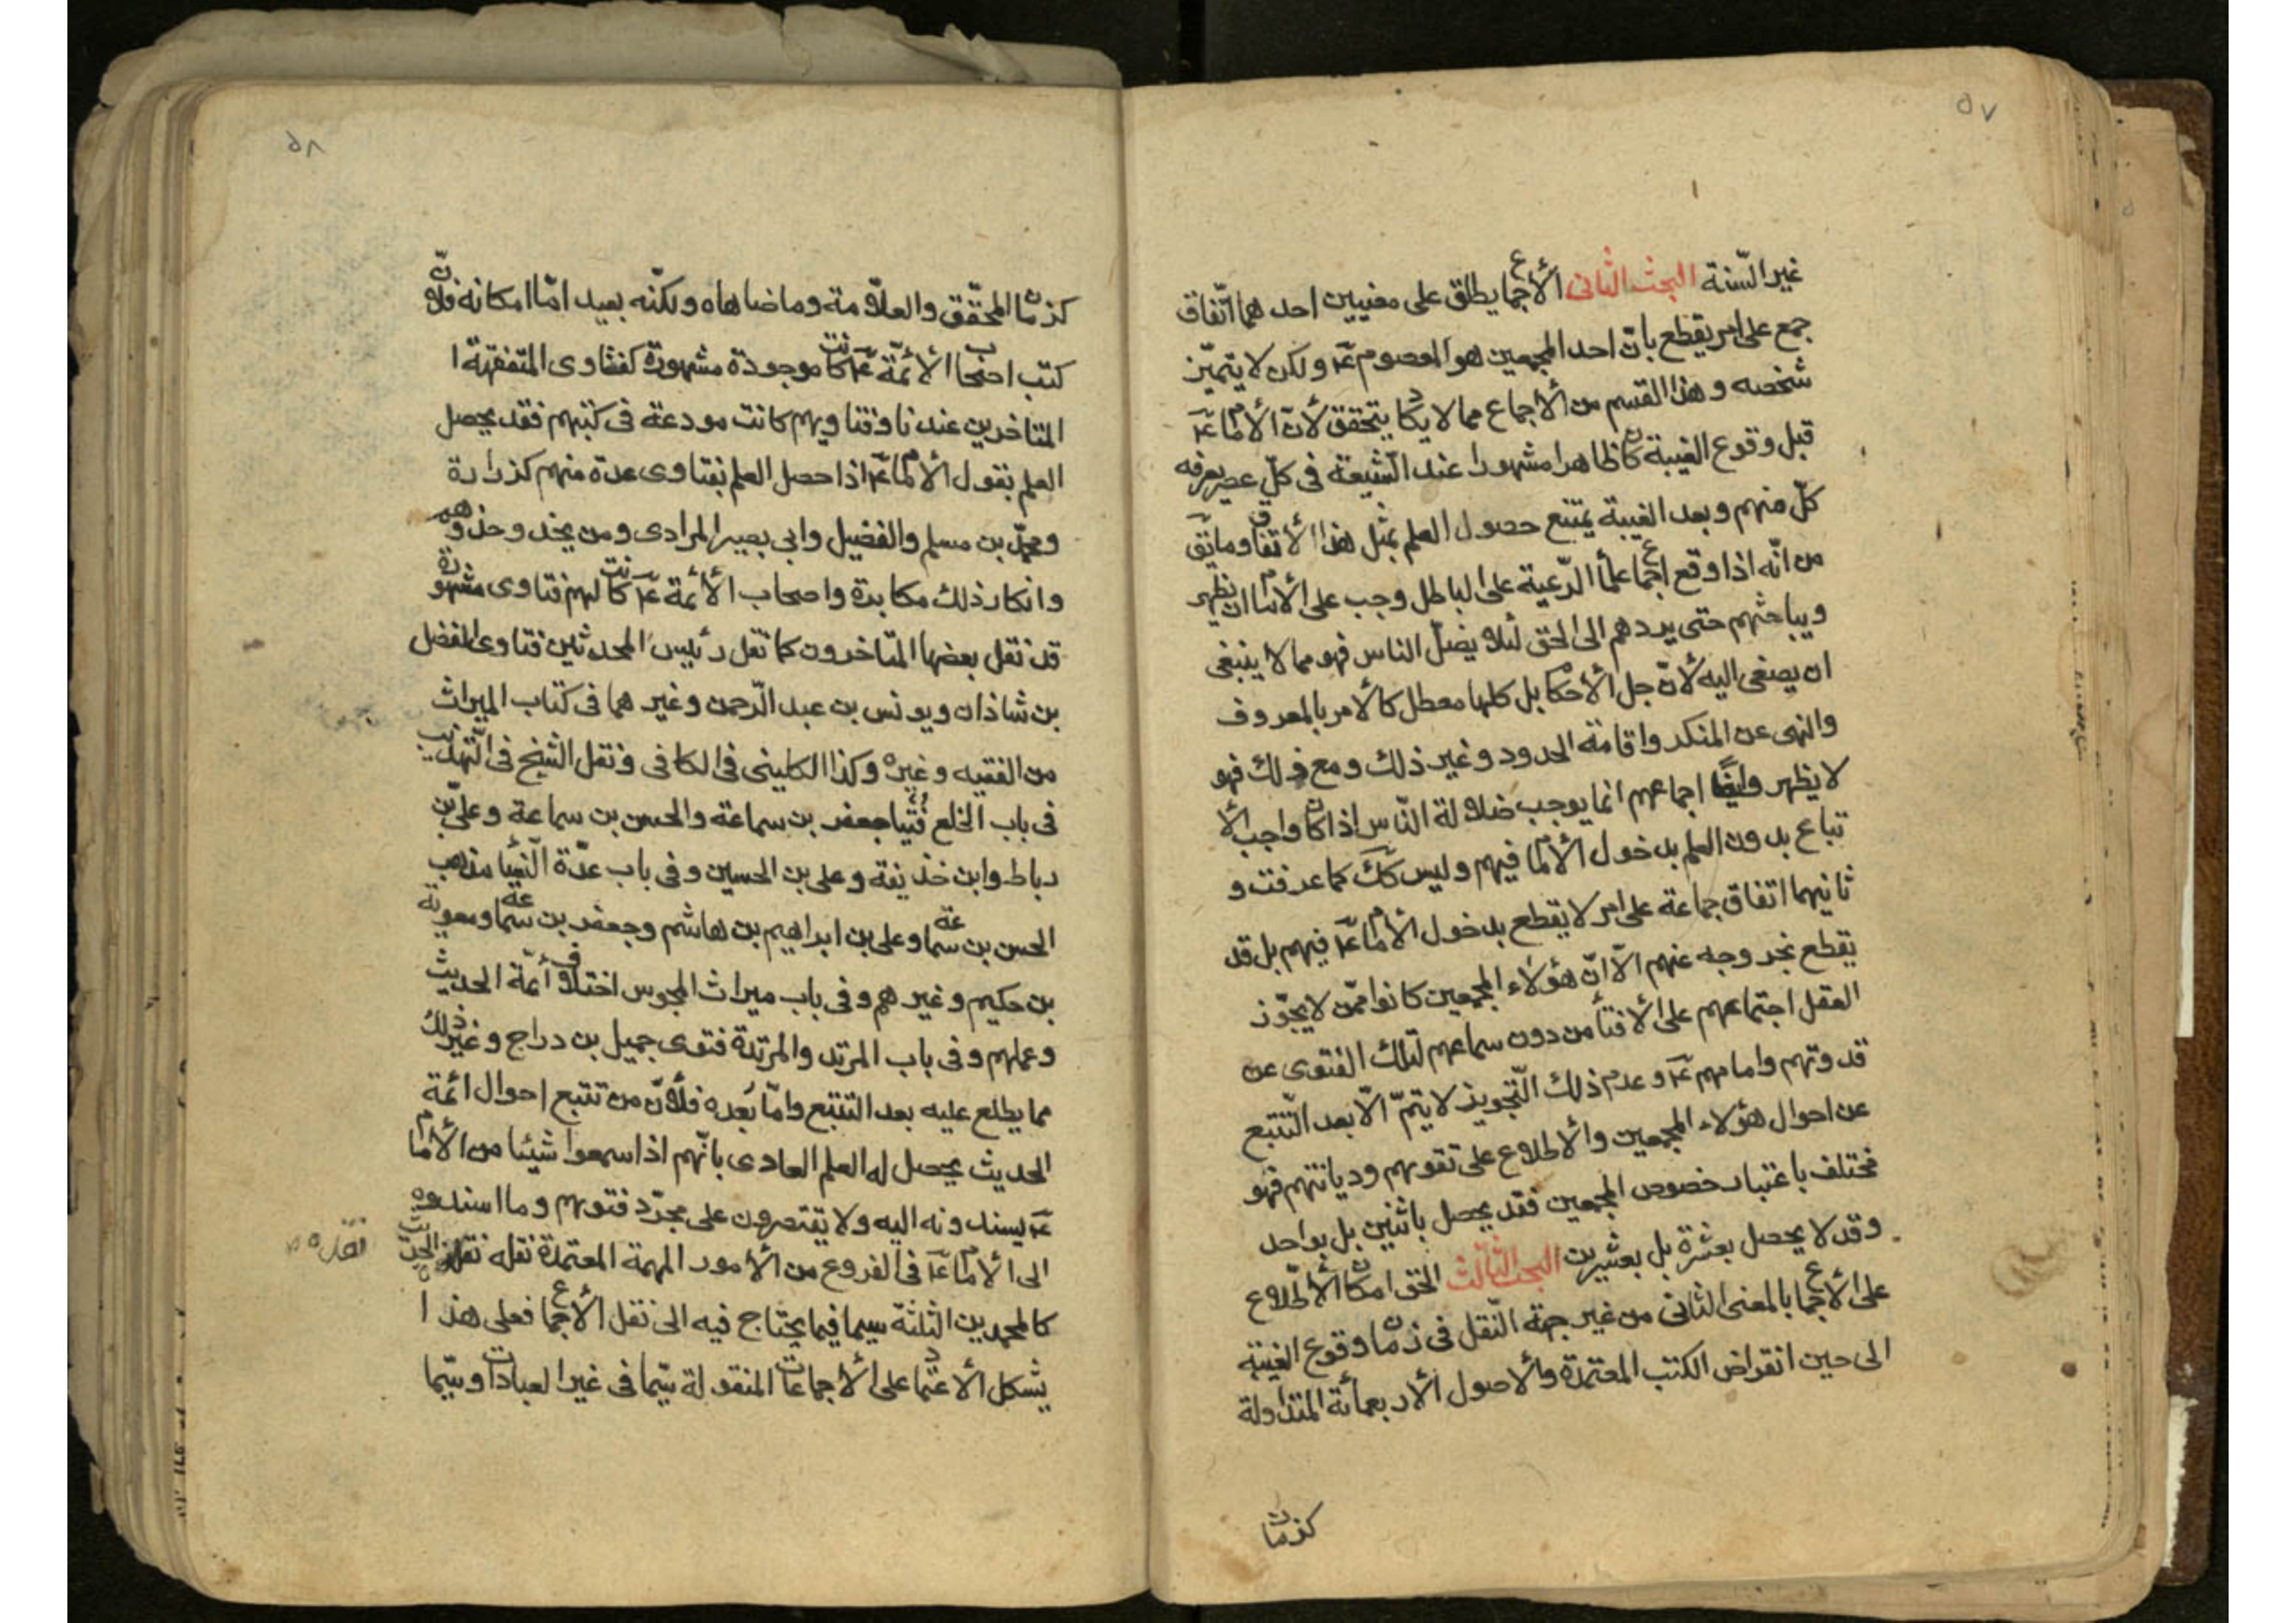 ٥٧
غير السّنة البحث الثانى الأجماع يطلق على معنيين احدهما اتّفاق
جمع على امر يقطع بانّ احد المجمعين هو المعصوم عَ ولكن لا يتميّز
شخصه وهذا القسم من الأجماع مما لا يكاد يتحقق لأنّ الأمام عَ
قبل وقوع الغيبة كان ظاهرا مشهورا عند الشيعة فى كلّ عصر يعرفه
كلّ منهم وبعد الغيبة يمتنع حصول العلم بمثل هذا الأتفاق وما يق
من انّه اذا وقع اجماع علمأ الرّعية على الباطل وجب على الأمام ان يظهر
ويباحثهم حتى يردهم الى الحق لئلا يضلّ الناس فهو مما لا ينبغى
ان يصغى اليه لأنّ جل الأحكام بل كلها معطل كالأمر بالمعروف
والنهى عن المنكر واقامة الحدود وغير ذلك ومع ذلك فهو
لا يظهر وايضًا اجماعهم انما يوجب ضلالة النّاس اذا كان واجب الأ
تباع بدون العلم بدخول الأمام فيهم وليس كك كما عرفت و
ثانيهما اتفاق جماعة على امر لا يقطع بدخول الأمام عَ فيهم بل قد
يقطع بخروجه عنهم الّا انّ هؤلاء المجمعين كانوا ممّن لا يجّوز
العقل اجتماعهم على الأفتأ من دون سماعهم لتلك الفتوى عن
قدوتهم وامامهم عَ وعدم ذلك التّجويز لا يتمّ الّا بعد التّتبع
عن احوال هؤلاء المجمعين والأطلاع على تقويهم وديانتهم فهو
مختلف باعتبار خصوص المجمعين فقد يحصل باثنين بل بواحد
وقد لا يحصل بعشرة بل بعشرين البحث الثالث الحق امكان الأطّلاع
على الأجماع بالمعنى الثانى من غير جهة النّقل فى زمان وقوع الغيبة
الى حين انقراض الكتب المعتمدة والأصول الأربعمأئة المتداولة
كزمان
٥٨
كزمان المحقّق والعلّامة وما ضاهاه ولكنّه بعيد امّا امكانه فلأنّ
كتب اصحاب الأئمّة عَ كانت موجودة مشهورة كفتاوى المتفقهة ا
المتاخرين عندنا وفتاويهم كانت مودعة فى كتبهم فقد يحصل
العلم بقول الأمام عَ اذا حصل العلم بفتاوى عدة منهم كزرارة
ومحمّد بن مسلم والفضيل وابى بصير المرادى ومن يحذو حذوهم
وانكار ذلك مكابرة واصحاب الأئمة عَ كانت لهم فتاوى مشهورة
قد نقل بعضها المتاخرون كما نقل رئيس المحدثين فتاوى الفضل
بن شاذان ويونس بن عبد الرّحمن وغيرهما فى كتاب الميراث
من الفقيه وغيره وكذا الكلينى فى الكافى ونقل الشيخ فى التّهذيب
فى باب الخلع فُتيا جعفر بن سماعة والحسن بن سماعة وعلىّ بن
رباط وابن حذيفة وعلى بن الحسين وفى باب عدّة النّسا مذهب
الحسن بن سماعة وعلى بن ابراهيم بن هاشم وجعفر بن سماعة ومعوية
بن حكيم وغيرهم وفى باب ميراث المجوس اختلاف أئمّة الحديث
وعملهم وفى باب المرتد والمرتدة فتوى جميل بن دراج وغير ذلك
مما يطلع عليه بعد التتبع وامّا بُعده فلأنّ من تتبع احوال ائمة
الحديث يحصل له العلم العادى بانّهم اذا سمعوا شيئا من الأمام
عَ يسندونه اليه ولا يقتصرون على مجرّد فتويهم وما اسندوه
الى الأمام عَ فى الفروع من الأمور المهمة المعتمدة نقله نقلة الحديث
كالمحمدين الثلثة سيما فيما يحتاج فيه الى نقل الأجماع فعلى هذا ا
يشكل الأعتماد على الأجماعات المنقولة سيّما فى غير العبادات وسيّما